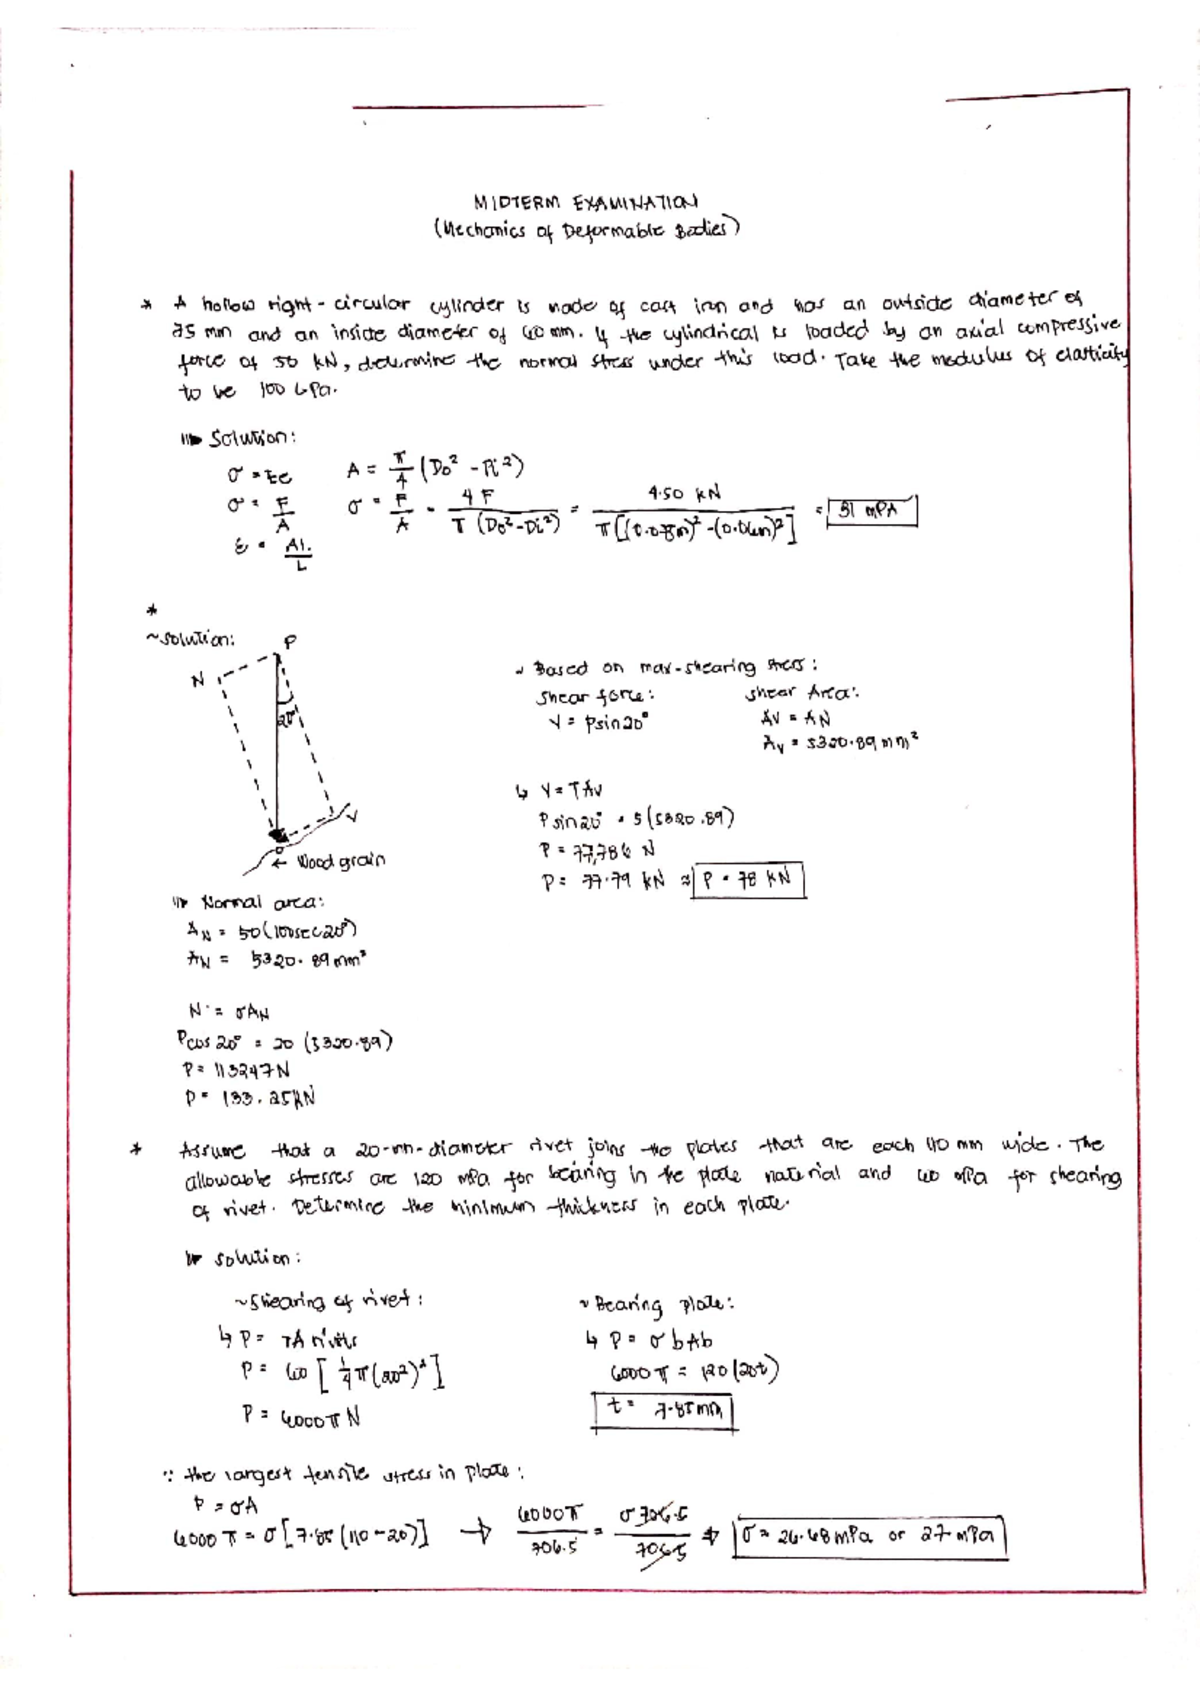 MIDTERM EXAMINATION
(Mechanics of Deformable Bodies)
* A hollow right-circular cylinder is made of cast iron and has an outside diameter of
75 mm and an inside diameter of 60 mm. If the cylindrical is loaded by an axial compressive
force of 50 kN, determine the normal stress under this load. Take the modulus of elasticity
to be 100 GPa.
Solution:
σ = Eε A = π/4 (Do² - Di²)
σ = F/A σ = F/A = 4F / π (Do² - Di²) = 4·50 kN / π[(0.075m)² - (0.06m)²] = 31 MPA
ε = Δl/L
*
~ Solution:
P
N
20°
V
← Wood grain
Normal area:
AN = 50(100sec20°)
AN = 5320.89mm²
N = σAN
Pcos20° = 20 (5320.89)
P = 113247N
P = 133.25kN
Based on max-shearing stress:
Shear force: Shear Area:
V = Psin20° AV = AN
AV = 5320.89mm²
↳ V = TAV
Psin20° = 5(5320.89)
P = 77,786 N
P = 77.79 kN ≈ P = 78 kN
* Assume that a 20-mm-diameter rivet joins the plates that are each 110 mm wide. The
allowable stresses are 120 MPa for bearing in the plate material and 60 MPa for shearing
of rivet. Determine the minimum thickness in each plate.
Solution:
~ Shearing of rivet: ~ Bearing plate:
↳ P = TA rivets ↳ P = σbAb
P = 60 [¼π(20²)²] 6000π = 120(20t)
P = 6000π N t = 7.85mm
∵ the largest tensile stress in plate:
P = σA
6000π = σ[7.85(110-20)] → 6000π/706.5 = σ706.5/706.5 → σ = 26.68MPa or 27 MPa